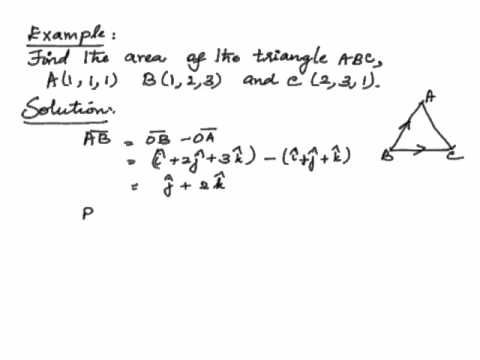 Example:
Find the area of the triangle ABC,
A(1, 1, 1) B(1, 2, 3) and C (2, 3, 1).
Solution:
A̅B̅ = O̅B̅ - O̅A̅
= (î + 2ĵ + 3k̂) - (î + ĵ + k̂)
= ĵ + 2k̂
P
A
B
C